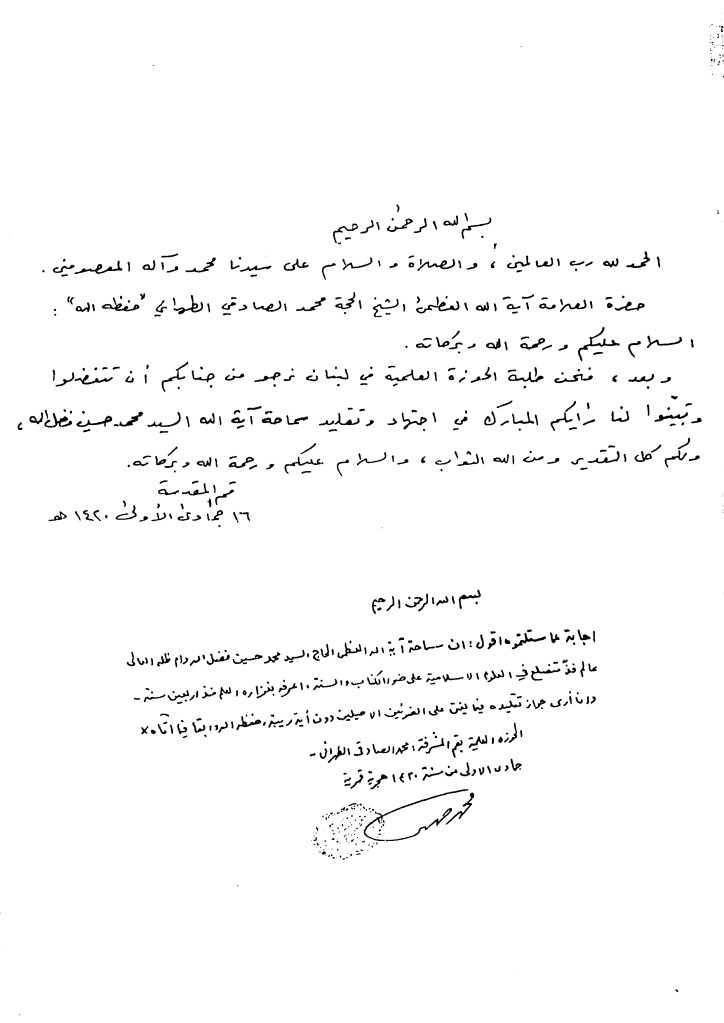 بسم الله الرحمن الرحيم
الحمد لله رب العالمين ، والصلاة والسلام على سيدنا محمد وآله المعصومين .
حضرة العلامة آية الله العظمى الشيخ الحجة محمد الصادقي الطهراني "حفظه الله" :
السلام عليكم ورحمة الله وبركاته .
وبعد ، فنحن طلبة الحوزة العلمية في لبنان نرجو من جنابكم أن تتفضلوا
وتبيّنوا لنا رأيكم المبارك في اجتهاد وتقليد سماحة آية الله السيد محمد حسين فضل الله ،
ولكم كل التقدير ومن الله الثواب ، والسلام عليكم ورحمة الله وبركاته .
قم المقدسة
١٦ جمادى الأولى ١٤٢٠ هـ
بسم الله الرحمن الرحيم
اجابة عما سئلتموه اقول : ان سماحة آية الله العظمى الحاج السيد محمد حسين فضل الله دام ظله العالى
عالم فذّ متضلع في العلوم الاسلامية على ضوء الكتاب والسنة ، اعرفه بغزاره العلم منذ اربعين سنة -
وانا أرى جواز تقليده فيما يفتى على الضوئين الاصيلين دون أية ريبة ، حفظه الله وابقا
الحوزه العلمية بقم المشرفة : محمد الصادقى الطهرانى -
جمادى الاولى من سنة ١٤٢٠ هجرية قمرية